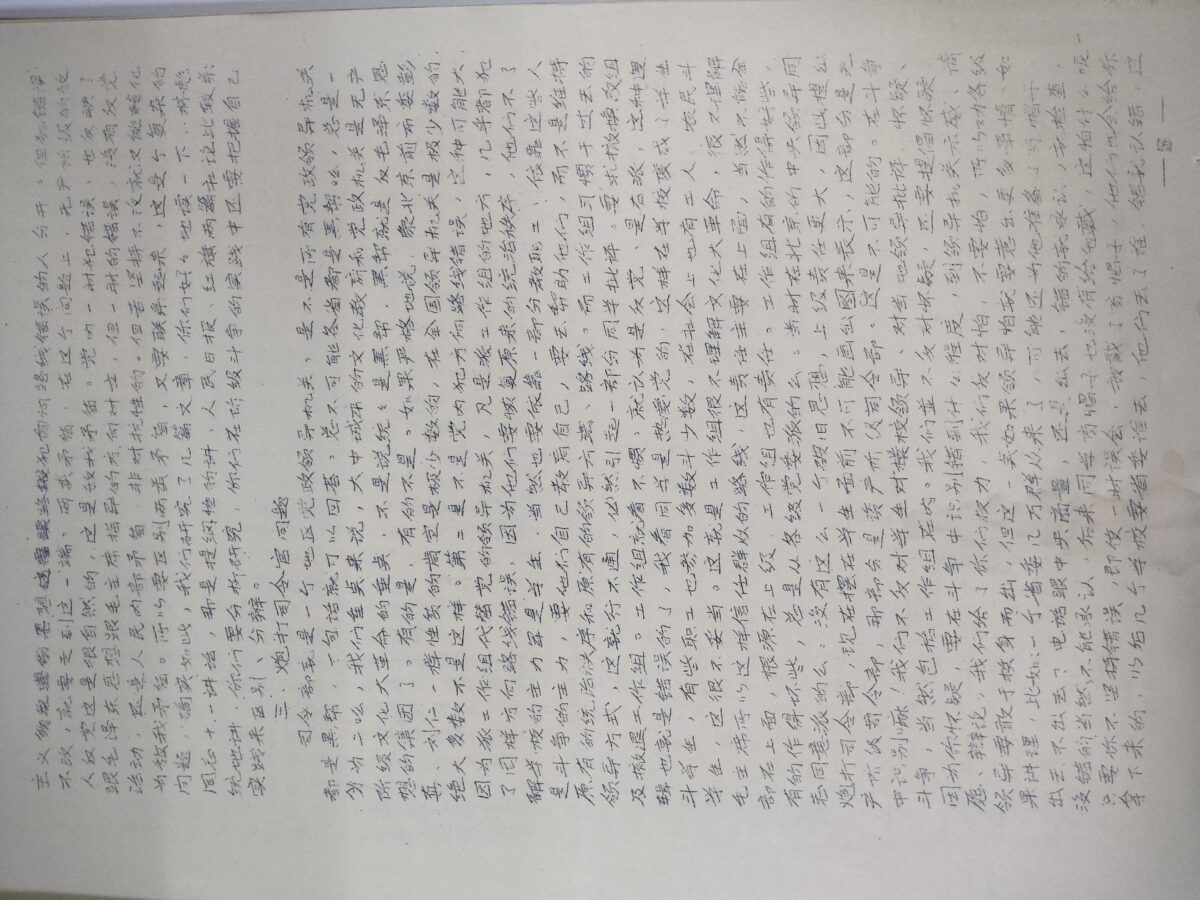 主义的反毛泽东思想这需跟路线犯方向路线错误的人分开。但犯错误
不改，就要走到这一端。两类矛盾，在这个问题上，无产阶级的敌
人反党这是很自然的，这是敌我矛盾。党内一时犯错误，也反映了
跟毛泽东思想跟毛主席指导的方向对立，但一时的错误，没有反党
活动，还是人民内部矛盾，非对抗性的。但若坚持不改就又能转化
为敌我矛盾。所以要区别两类矛盾，又要联系起来，这是个复杂的
问题，确实如此，我们研究了几篇文章，你们好々地读一下，林彪
同志十一讲话，那是提纲性的讲，人民日报、红旗两篇社论比较系
统地讲，你们要分析研究，你们在阶级斗争的实践中还要把握自己
实践来区别、分辨。
三、炮打司令官问题
司令部就是一个地区党政领导机关，是不是所有党政领导机关
都是黑帮，一句话就可以回答。总不可能各省都是黑帮吆，总是一
分为二吆，我们重点来说，大中城市的文化教育和党政机关是无产
阶级文化大革命的重点，不是说统々是黑帮，黑帮就是反毛泽东思
想的集团了。有的是，有的不是。如果严格地说，象北京前市委彭
真、刘仁一样性质的肯定是极少数的，在全国领导机关是极少数的，
绝大多数不是这样。第二是不是党内犯方向路线错误，这种可能大，
因为派工作组代替党的领导机关，凡是派工作组的地方，几乎都犯
了同样方向路线错误，因为他们要恢复原来的统治秩序，他们不了
解学校的主力军是学生，当然也要依靠一部分教职工，依靠这些人
是斗争的主力，要他们自己教育自己，要去帮助他们，而不是维持
原有的统治秩序和原有的领导方法、路线。而工作组习惯于过去的
领导方式，这就行不通，必然引起一部分同学批评。要求撤换改组
及撤退工作组。工作组就看不惯，就认为是反党、是右派，这种逻
辑也就是错误的了，我看同学是热爱党的，这样在学校变成了学生
斗学生，有些职工也参加多数斗少数，在社会上也有工人、农民斗
学生，这很不妥当。这就是工作组很不理解文化大革命，很不理解
毛主席所以这样信任群众的路线，这责任主要在上面，当然不能全
部在上面，根源在上级，工作组也有责任。工作组有的作得好些，
有的作得坏些，总是从各级党委派的么。当时在北京的中央领导同
志同意派的么。没有这么一个破旧思想，上级责任更大，因此提出
炮打司令部，现在摆在学生面前不可能画出图来表示，这部分是无
产阶级司令部，那部分是资产阶级司令部。这是不可能的。在斗争
中识别嘛！我们不反对学生对模校领导、对当地领导批评、怀疑、
斗争，当然包括工作组在内。我们並不反对怀疑，还要提倡怀疑，
因为你怀疑，要在斗争中识别错到什么程度，到领导机关示威、请
愿、辩论，我们给了你们权力，我们反对怕，不要怕，所以劝各级
领导要敢于挺身而出，但这一点如果领导怕就要惹出更多事情。如
果讲理，比如：一个省委几万群众来了，可能还为他准备了高帽子
出去不出去？电话跟中央商量，还是出去，错的就承认，去检查，
没错的当然不能承认，后来同学高帽子也没有给他戴，这怕什么呢
只要你不坚持错误，即使一时误会，被戴了高帽子，他们也会给你
拿下来的，以给几个学校要省委谁去，他们去了谁，错就认错，还
—5—